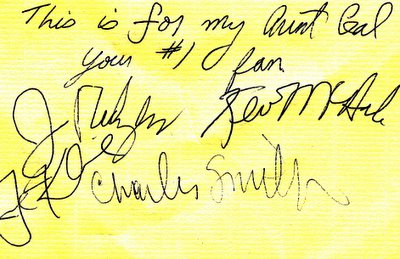 This is for my Aunt Gal
your #1 fan
Kev McHale
Charles Smith